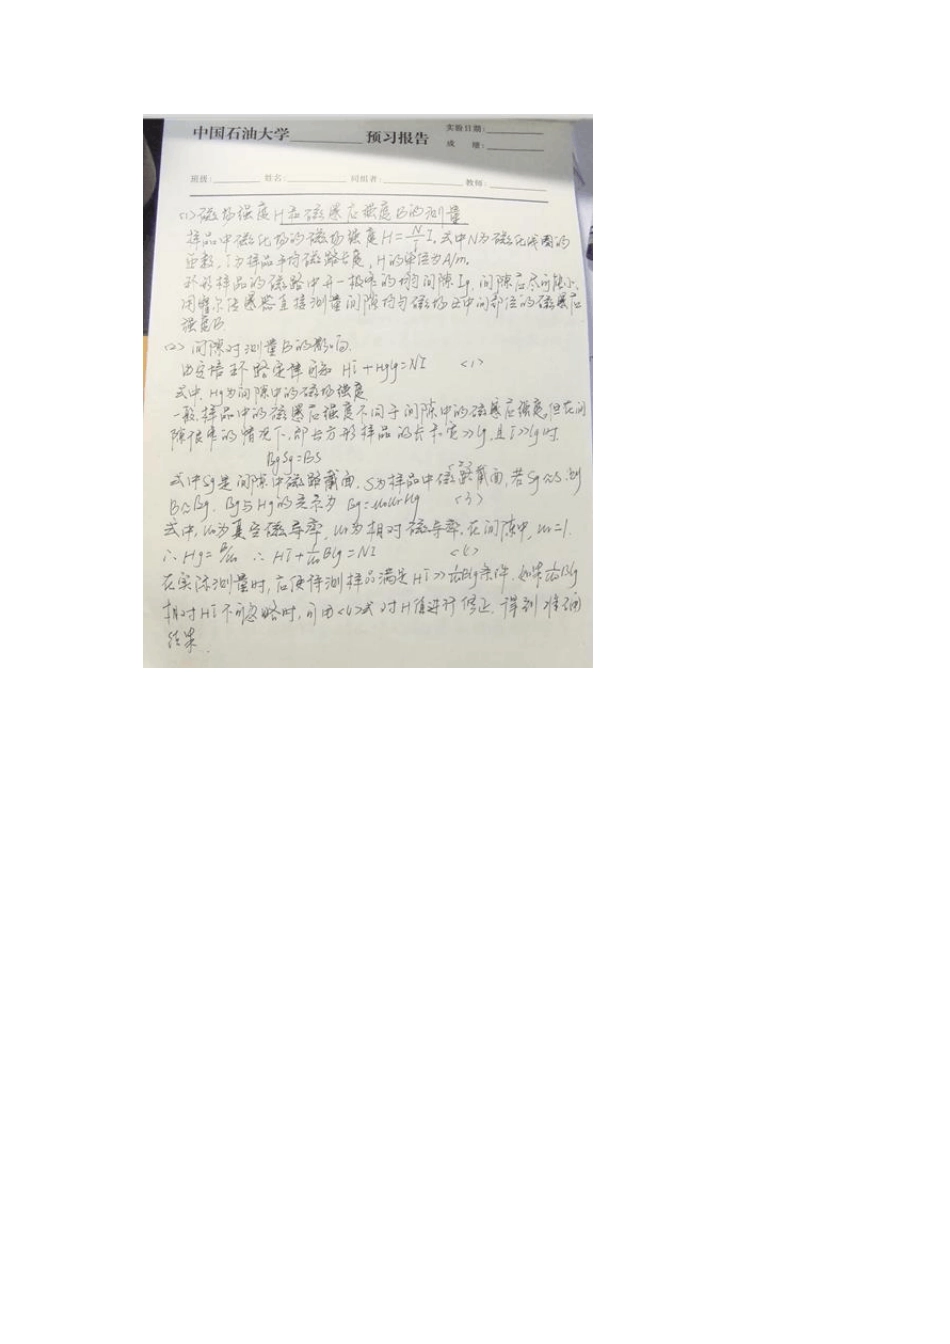 中国石油大学________ 预习报告
实验日期:________
成 绩:________
班级:________ 姓名:________ 同组者:________ 教师:________
<1>磁场强度H和磁感应强度B的测量
样品中磁化场的磁场强度H=N/l̄ I, 式中N为磁化线圈的
匝数, l̄为样品平均磁路长度, H的单位为A/m.
环形样品的磁路中开一极窄的均匀间隙lg, 间隙应尽可能小,
用霍尔传感器直接测量间隙均匀磁场区中间部位的磁感应
强度B.
<2>间隙对测量B的影响.
由安培环路定律可知 Hl̄+Hglg=NI <1>
式中, Hg为间隙中的磁场强度
一般, 样品中的磁感应强度不同于间隙中的磁感应强度, 但在间
隙很窄的情况下, 即长方形样品的长和宽>>lg, 且l̄>>lg时,
BgSg=BS <2>
式中Sg是间隙中磁路截面, S为样品中磁路截面, 若Sg≈S, 则
B≈Bg. Bg与Hg的关系为 Bg=u₀urHg <3>
式中, u₀为真空磁导率, ur为相对磁导率, 在间隙中, ur=1.
∴Hg=B/u₀ ∴Hl̄+1/u₀ Blg=NI <4>
在实际测量时, 应使待测样品满足Hl̄>>1/u₀ Blg条件. 如果1/u₀ Blg
相对Hl̄不可忽略时, 可由<4>式对H值进行修正, 得到准确
结果.